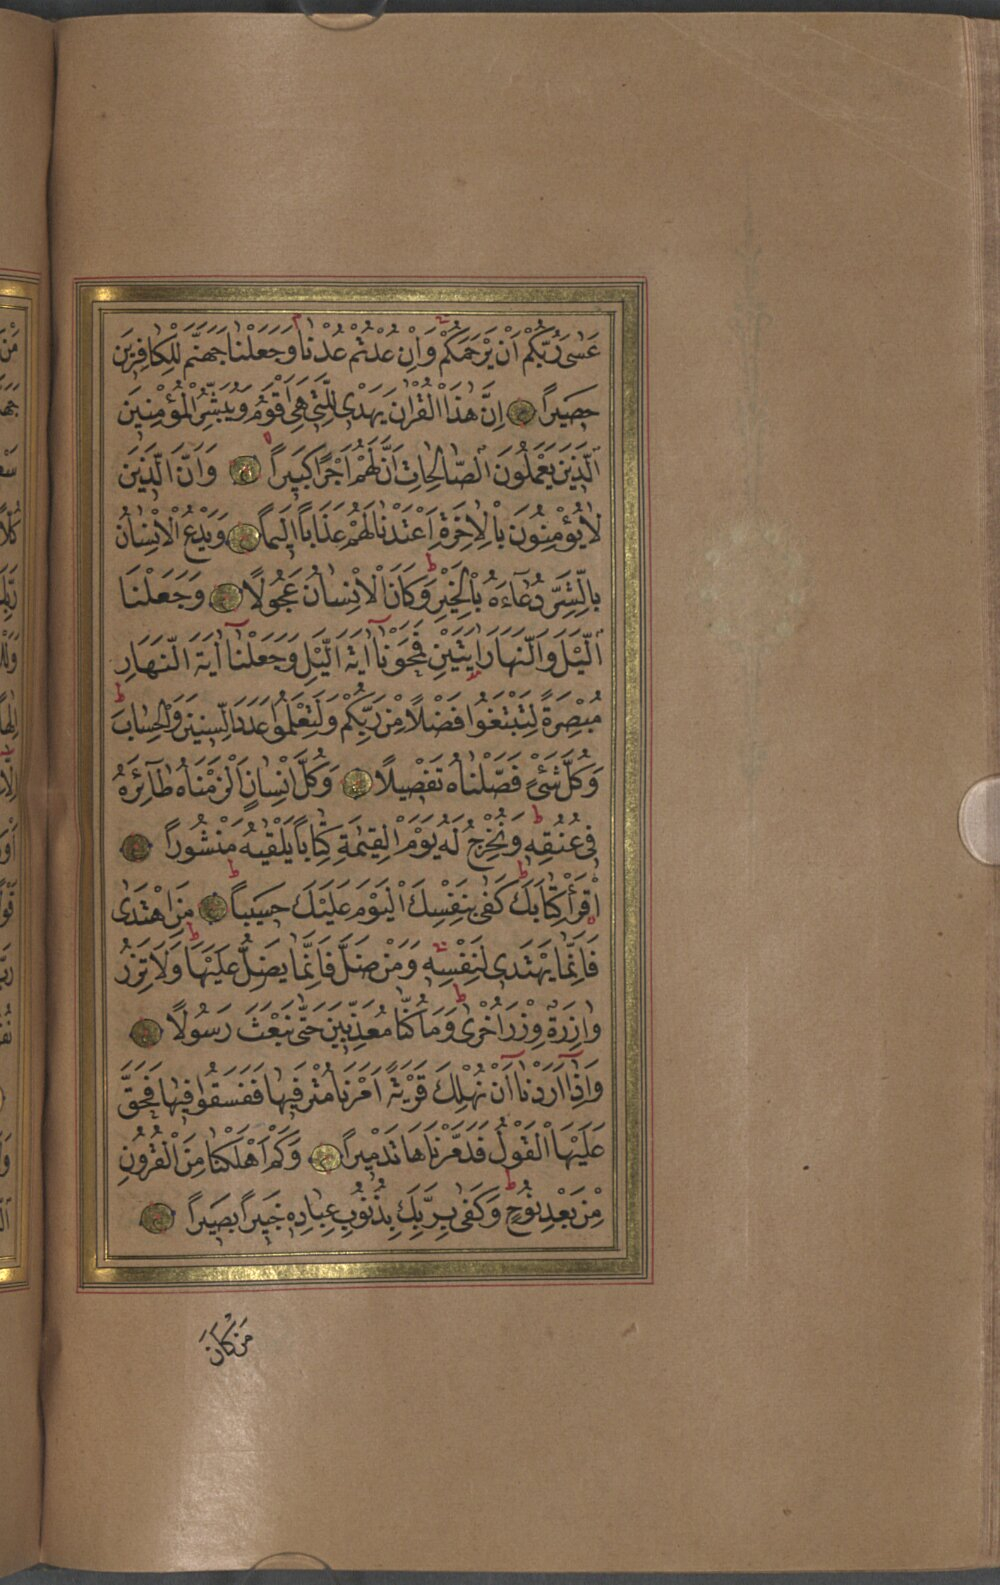 عَسٰى رَبُّكُمْ اَنْ يَرْحَمَكُمْ وَاِنْ عُدْتُمْ عُدْنَا وَجَعَلْنَا جَهَنَّمَ لِلْكَافِرِينَ
حَصِيراً اِنَّ هٰذَا الْقُرْاٰنَ يَهْدِى لِلَّتِى هِىَ اَقْوَمُ وَيُبَشِّرُ الْمُؤْمِنِينَ
اَلَّذِينَ يَعْمَلُونَ الصَّالِحَاتِ اَنَّ لَهُمْ اَجْراً كَبِيراً وَاَنَّ الَّذِينَ
لَا يُؤْمِنُونَ بِالْاٰخِرَةِ اَعْتَدْنَا لَهُمْ عَذَاباً اَلِيماً وَيَدْعُ الْاِنْسَانُ
بِالشَّرِّ دُعَآءَهُ بِالْخَيْرِ وَكَانَ الْاِنْسَانُ عَجُولًا وَجَعَلْنَا
الَّيْلَ وَالنَّهَارَ اٰيَتَيْنِ فَمَحَوْنَآ اٰيَةَ الَّيْلِ وَجَعَلْنَآ اٰيَةَ النَّهَارِ
مُبْصِرَةً لِتَبْتَغُوا فَضْلًا مِنْ رَبِّكُمْ وَلِتَعْلَمُوا عَدَدَ السِّنِينَ وَالْحِسَابَ
وَكُلَّ شَىْءٍ فَصَّلْنَاهُ تَفْصِيلًا وَكُلَّ اِنْسَانٍ اَلْزَمْنَاهُ طَآئِرَهُ
فِى عُنُقِهِ وَنُخْرِجُ لَهُ يَوْمَ الْقِيٰمَةِ كِتَاباً يَلْقٰيهُ مَنْشُوراً
اِقْرَأْ كِتَابَكَ كَفٰى بِنَفْسِكَ الْيَوْمَ عَلَيْكَ حَسِيباً مَنِ اهْتَدٰى
فَاِنَّمَا يَهْتَدِى لِنَفْسِهِ وَمَنْ ضَلَّ فَاِنَّمَا يَضِلُّ عَلَيْهَا وَلَا تَزِرُ
وَازِرَةٌ وِزْرَ اُخْرٰى وَمَا كُنَّا مُعَذِّبِينَ حَتّٰى نَبْعَثَ رَسُولًا
وَاِذَآ اَرَدْنَآ اَنْ نُهْلِكَ قَرْيَةً اَمَرْنَا مُتْرَفِيهَا فَفَسَقُوا فِيهَا فَحَقَّ
عَلَيْهَا الْقَوْلُ فَدَمَّرْنَاهَا تَدْمِيراً وَكَمْ اَهْلَكْنَا مِنَ الْقُرُونِ
مِنْ بَعْدِ نُوحٍ وَكَفٰى بِرَبِّكَ بِذُنُوبِ عِبَادِهِ خَبِيراً بَصِيراً
مَنْ كَانَ